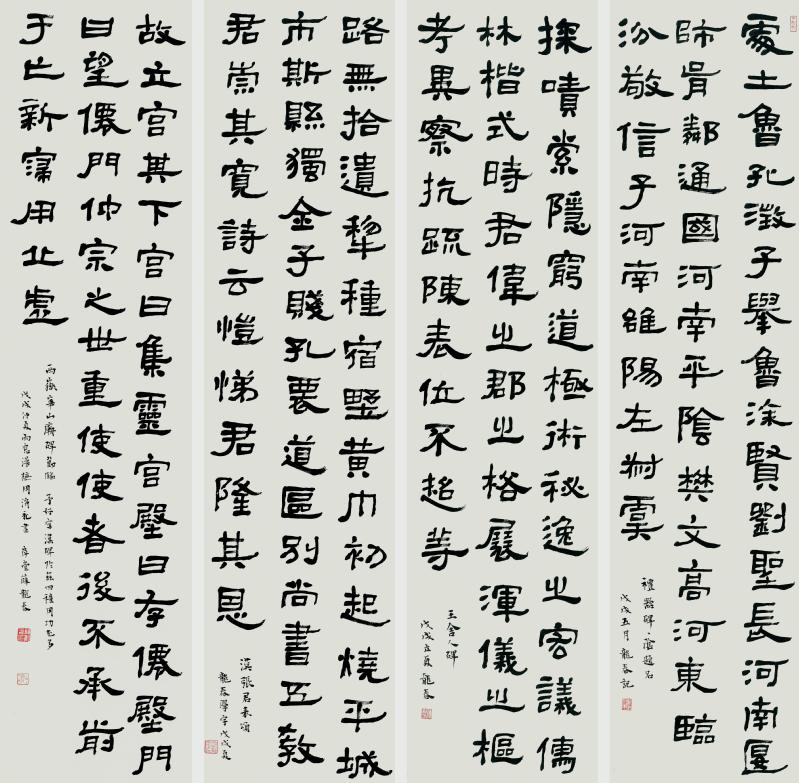 處士魯孔澂子舉魯涂賢劉聖長河南匽
師胥鄰通國河南平陰樊文高河東臨
汾敬信子河南雒陽左叔虞
禮器碑陰題名
戊戌五月龍春記
探嘖索隱窮道極術秘逸之宏議傳
林楷式時君偉之郡之格展渾儀之樞
考異察抗疏陳表位不超等
王舍人碑
戊戌立夏龍春
路無拾遺犂種宿野黃巾初起燒平城
市斯縣獨全子賤孔蔑道區別尚書五教
君崇其寬詩云愷悌君隆其恩
漢張君表頌
龍春學字戊戌夏
故立宮其下宮曰集靈宮殿曰存僊殿門
曰望僊門仲宗之世重使使者後不承前
于亡新寖用丘虛
西嶽華山廟碑節臨